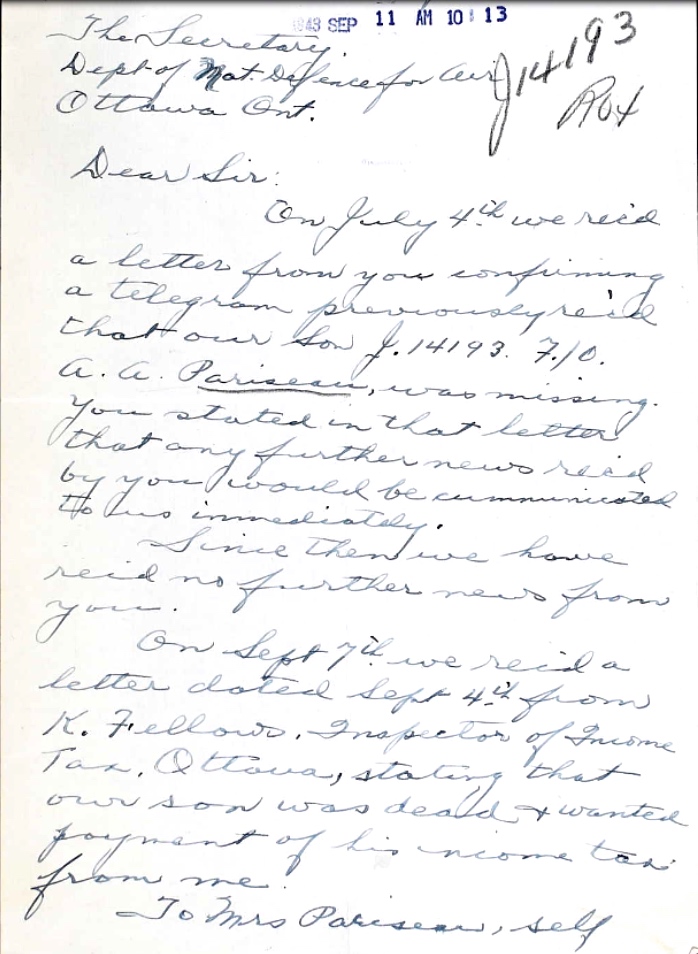 1943 SEP 11 AM 10 13
The Secretary.
Dept of Nat. Defence for Air
J14193
Ottawa Ont.
Dear Sir:
On July 4th we rec'd
a letter from you confirming
a telegram previously rec'd
that our son J.14193. F./O.
A. A. Pariseau, was missing.
You stated in that letter
that any further news rec'd
by you would be cummunicated
to us immediately.
Since then we have
rec'd no further news from
you.
On Sept 7th we rec'd a
letter dated Sept 4th from
K. Fellows, Inspector of Income
Tax, Ottawa, stating that
our son was dead & wanted
payment of his income tax
from me.
To Mrs Pariseau, self